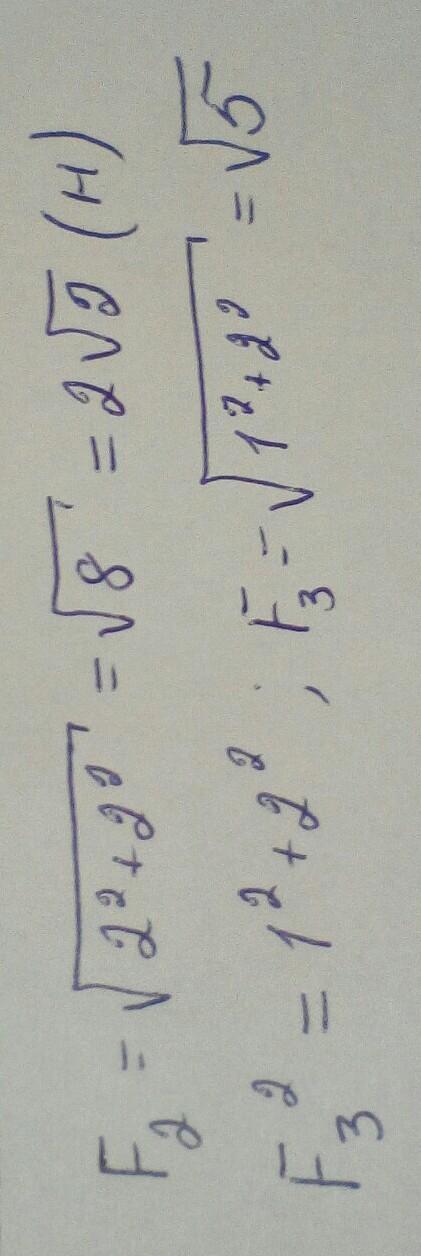 F₂ = √(2² + 2²) = √8 = 2√2 (Н)
F₃² = 1² + 2² ; F₃ = √(1² + 2²) = √5